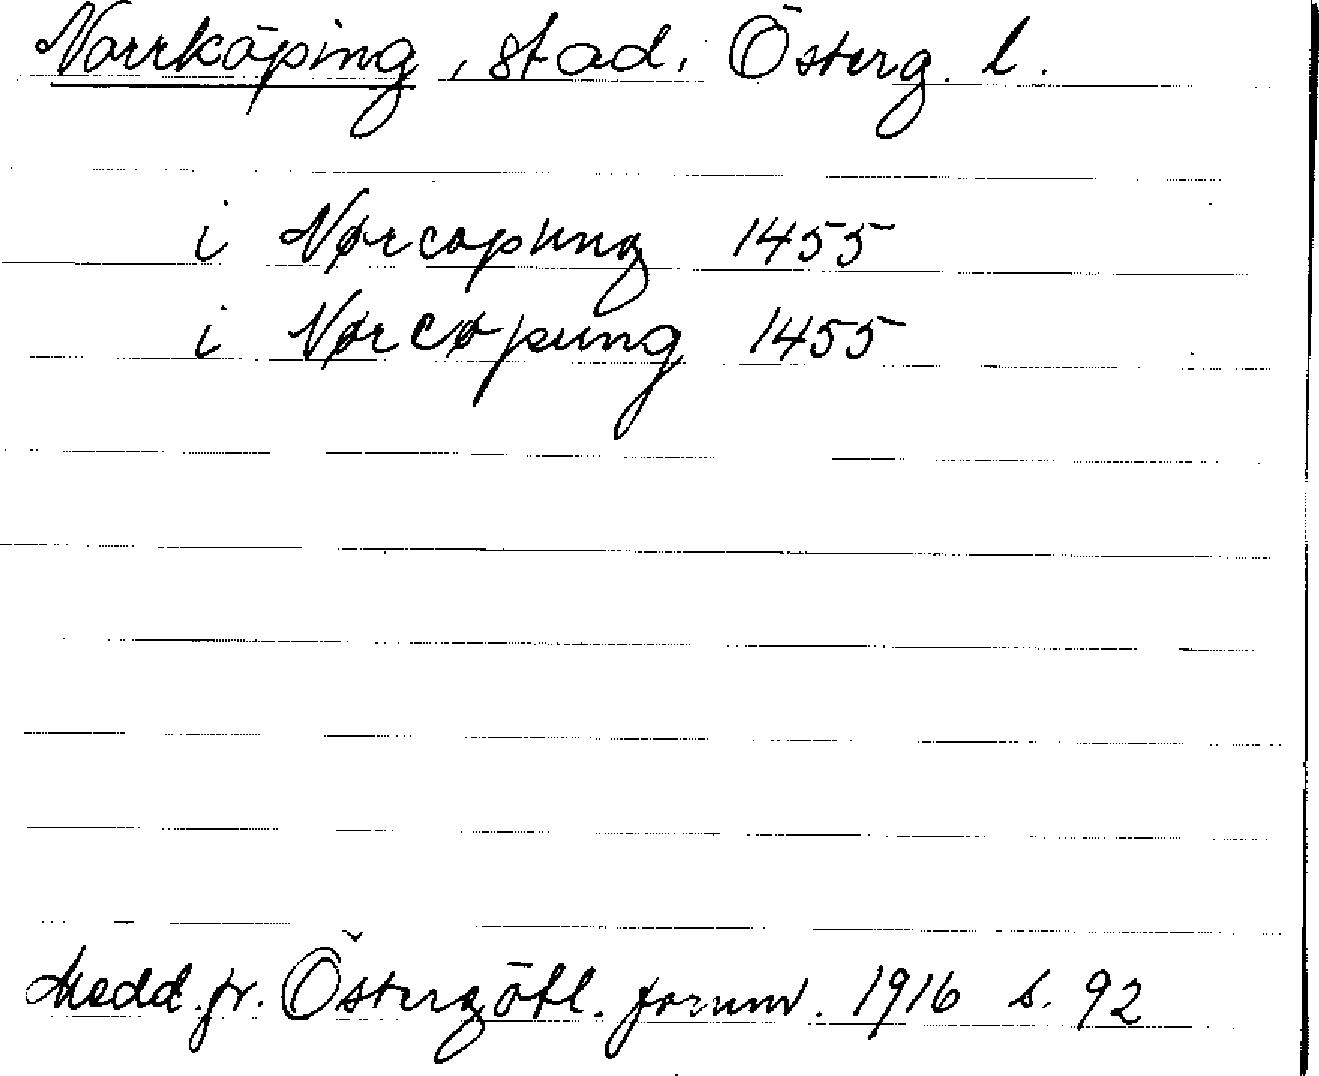 Norrköping, stad, Österg. l.
i Nørcopung 1455
i Nørcøpung 1455
Medd. fr. Östergötl. fornm. 1916 s. 92